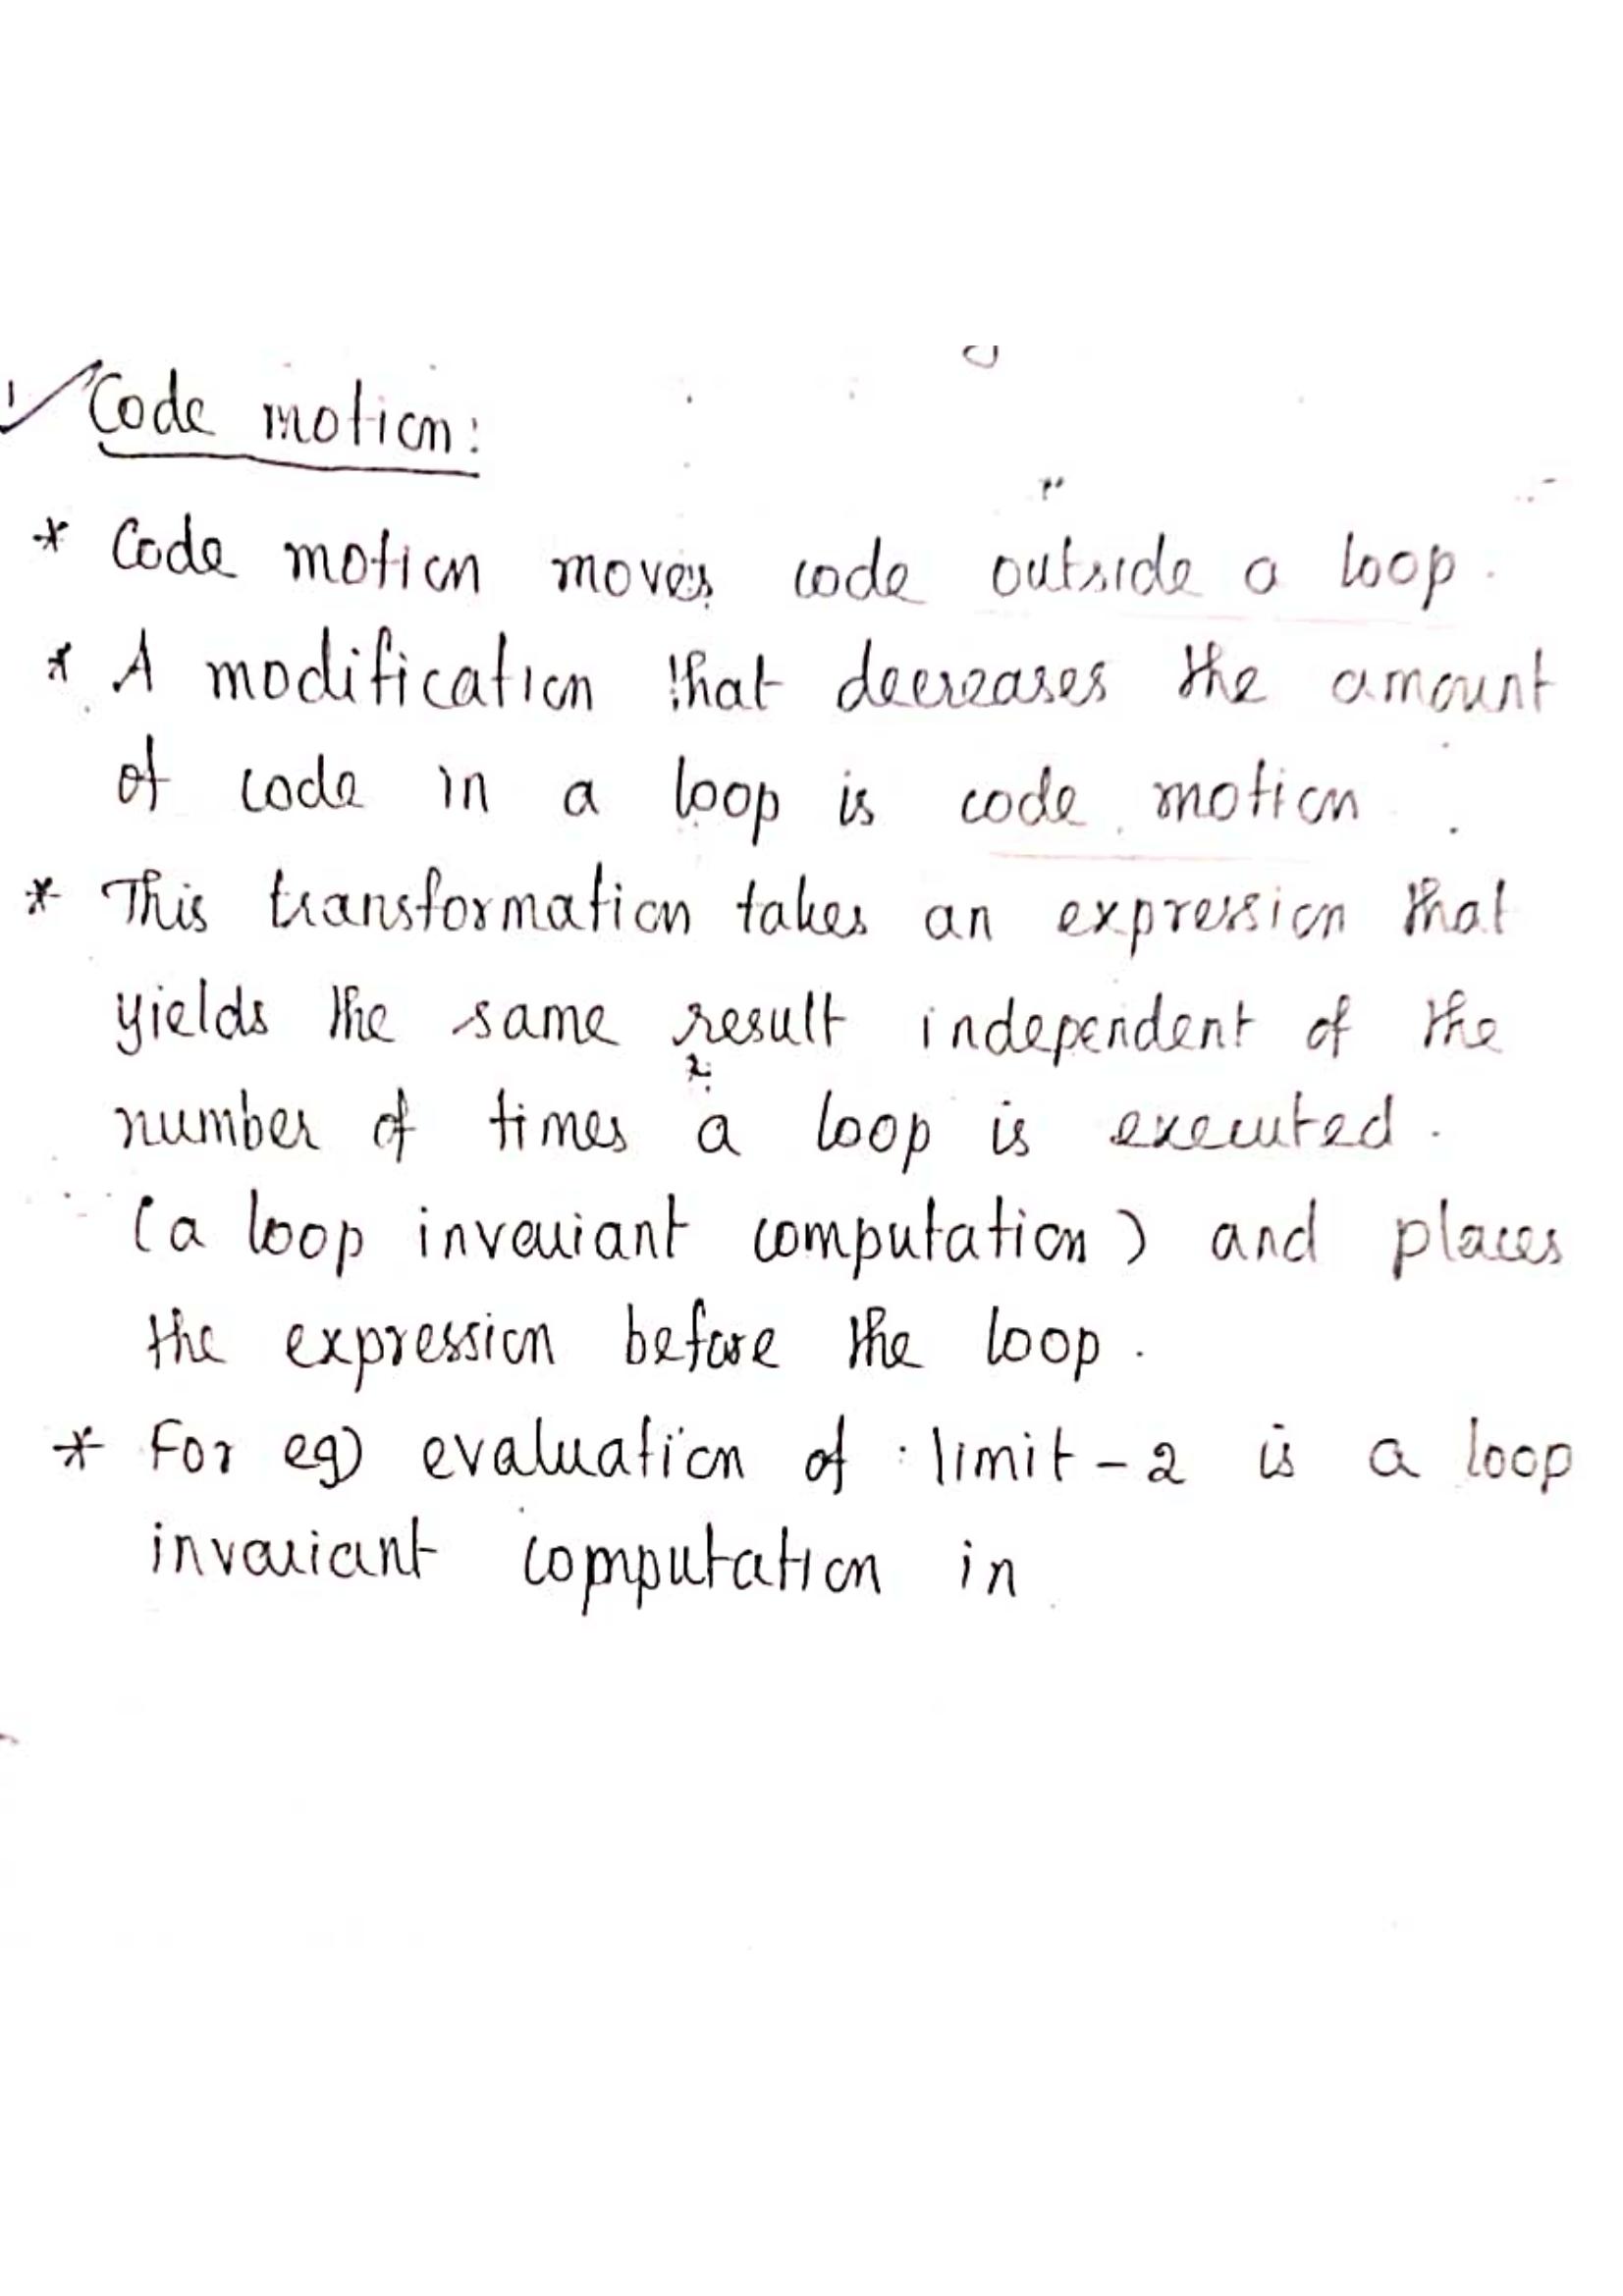 Code motion:
* Code motion moves code outside a loop.
* A modification that decreases the amount
of code in a loop is code motion.
* This transformation takes an expression that
yields the same result independent of the
number of times a loop is executed.
(a loop invariant computation) and places
the expression before the loop.
* For eg) evaluation of limit-2 is a loop
invariant computation in